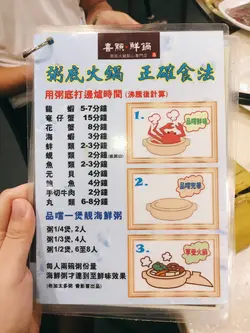 喜照·鮮鍋
粥底火鍋 正確食法
用粥底打邊爐時間(沸騰後計算)
龍蝦 5-7分鐘
奄仔蟹 15分鐘
花蟹 8分鐘
海蝦 3分鐘
鮮類 2-3分鐘
蜆類 2分鐘
元貝 4分鐘
鮑魚 4分鐘
手切牛肉 2分鐘
丸類 6-8分鐘
品嚐一煲靚海鮮粥
粥1/4煲, 2人
粥1/3煲, 4人
粥1/2煲, 6至8人
每人兩碗粥份量
海鮮粥才達到至鮮味效果
1.
品嚐鮮味
2.
品嚐完畢
3.
享受火鍋